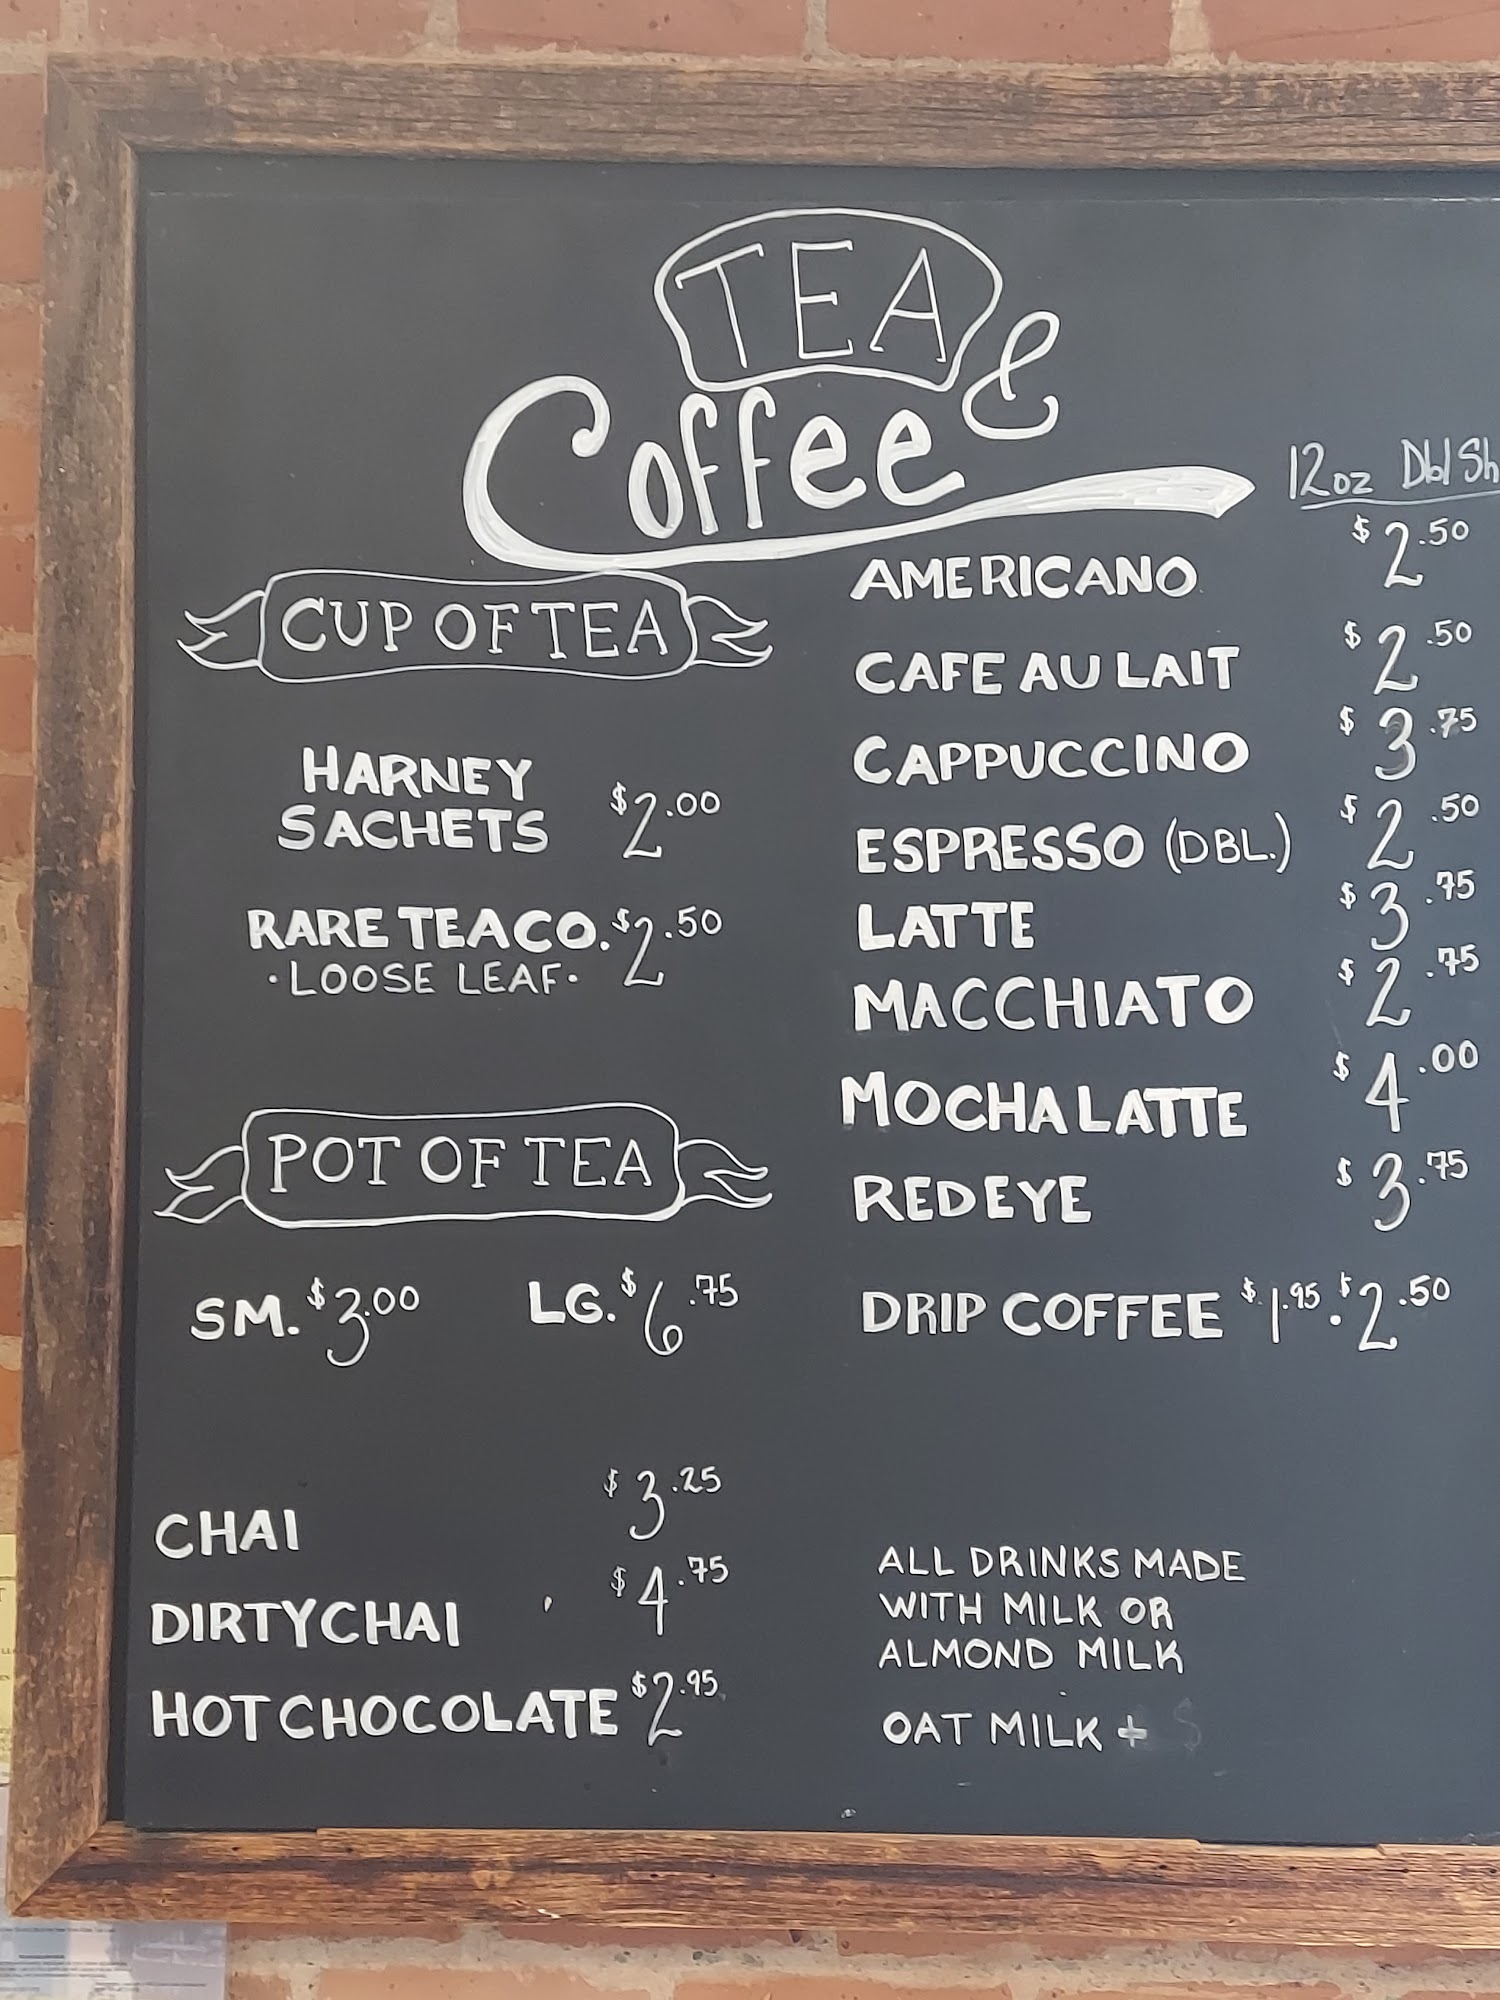 TEA
&
Coffee
12oz Dbl Sh
CUP OF TEA
HARNEY
SACHETS $2.00
RARE TEA CO. $2.50
· LOOSE LEAF ·
POT OF TEA
SM. $3.00 LG. $6.75
CHAI $3.25
DIRTY CHAI $4.75
HOT CHOCOLATE $2.95
AMERICANO $2.50
CAFE AU LAIT $2.50
CAPPUCCINO $3.75
ESPRESSO (DBL.) $2.50
LATTE $3.75
MACCHIATO $2.75
MOCHA LATTE $4.00
REDEYE $3.75
DRIP COFFEE $1.95 · $2.50
ALL DRINKS MADE
WITH MILK OR
ALMOND MILK
OAT MILK +